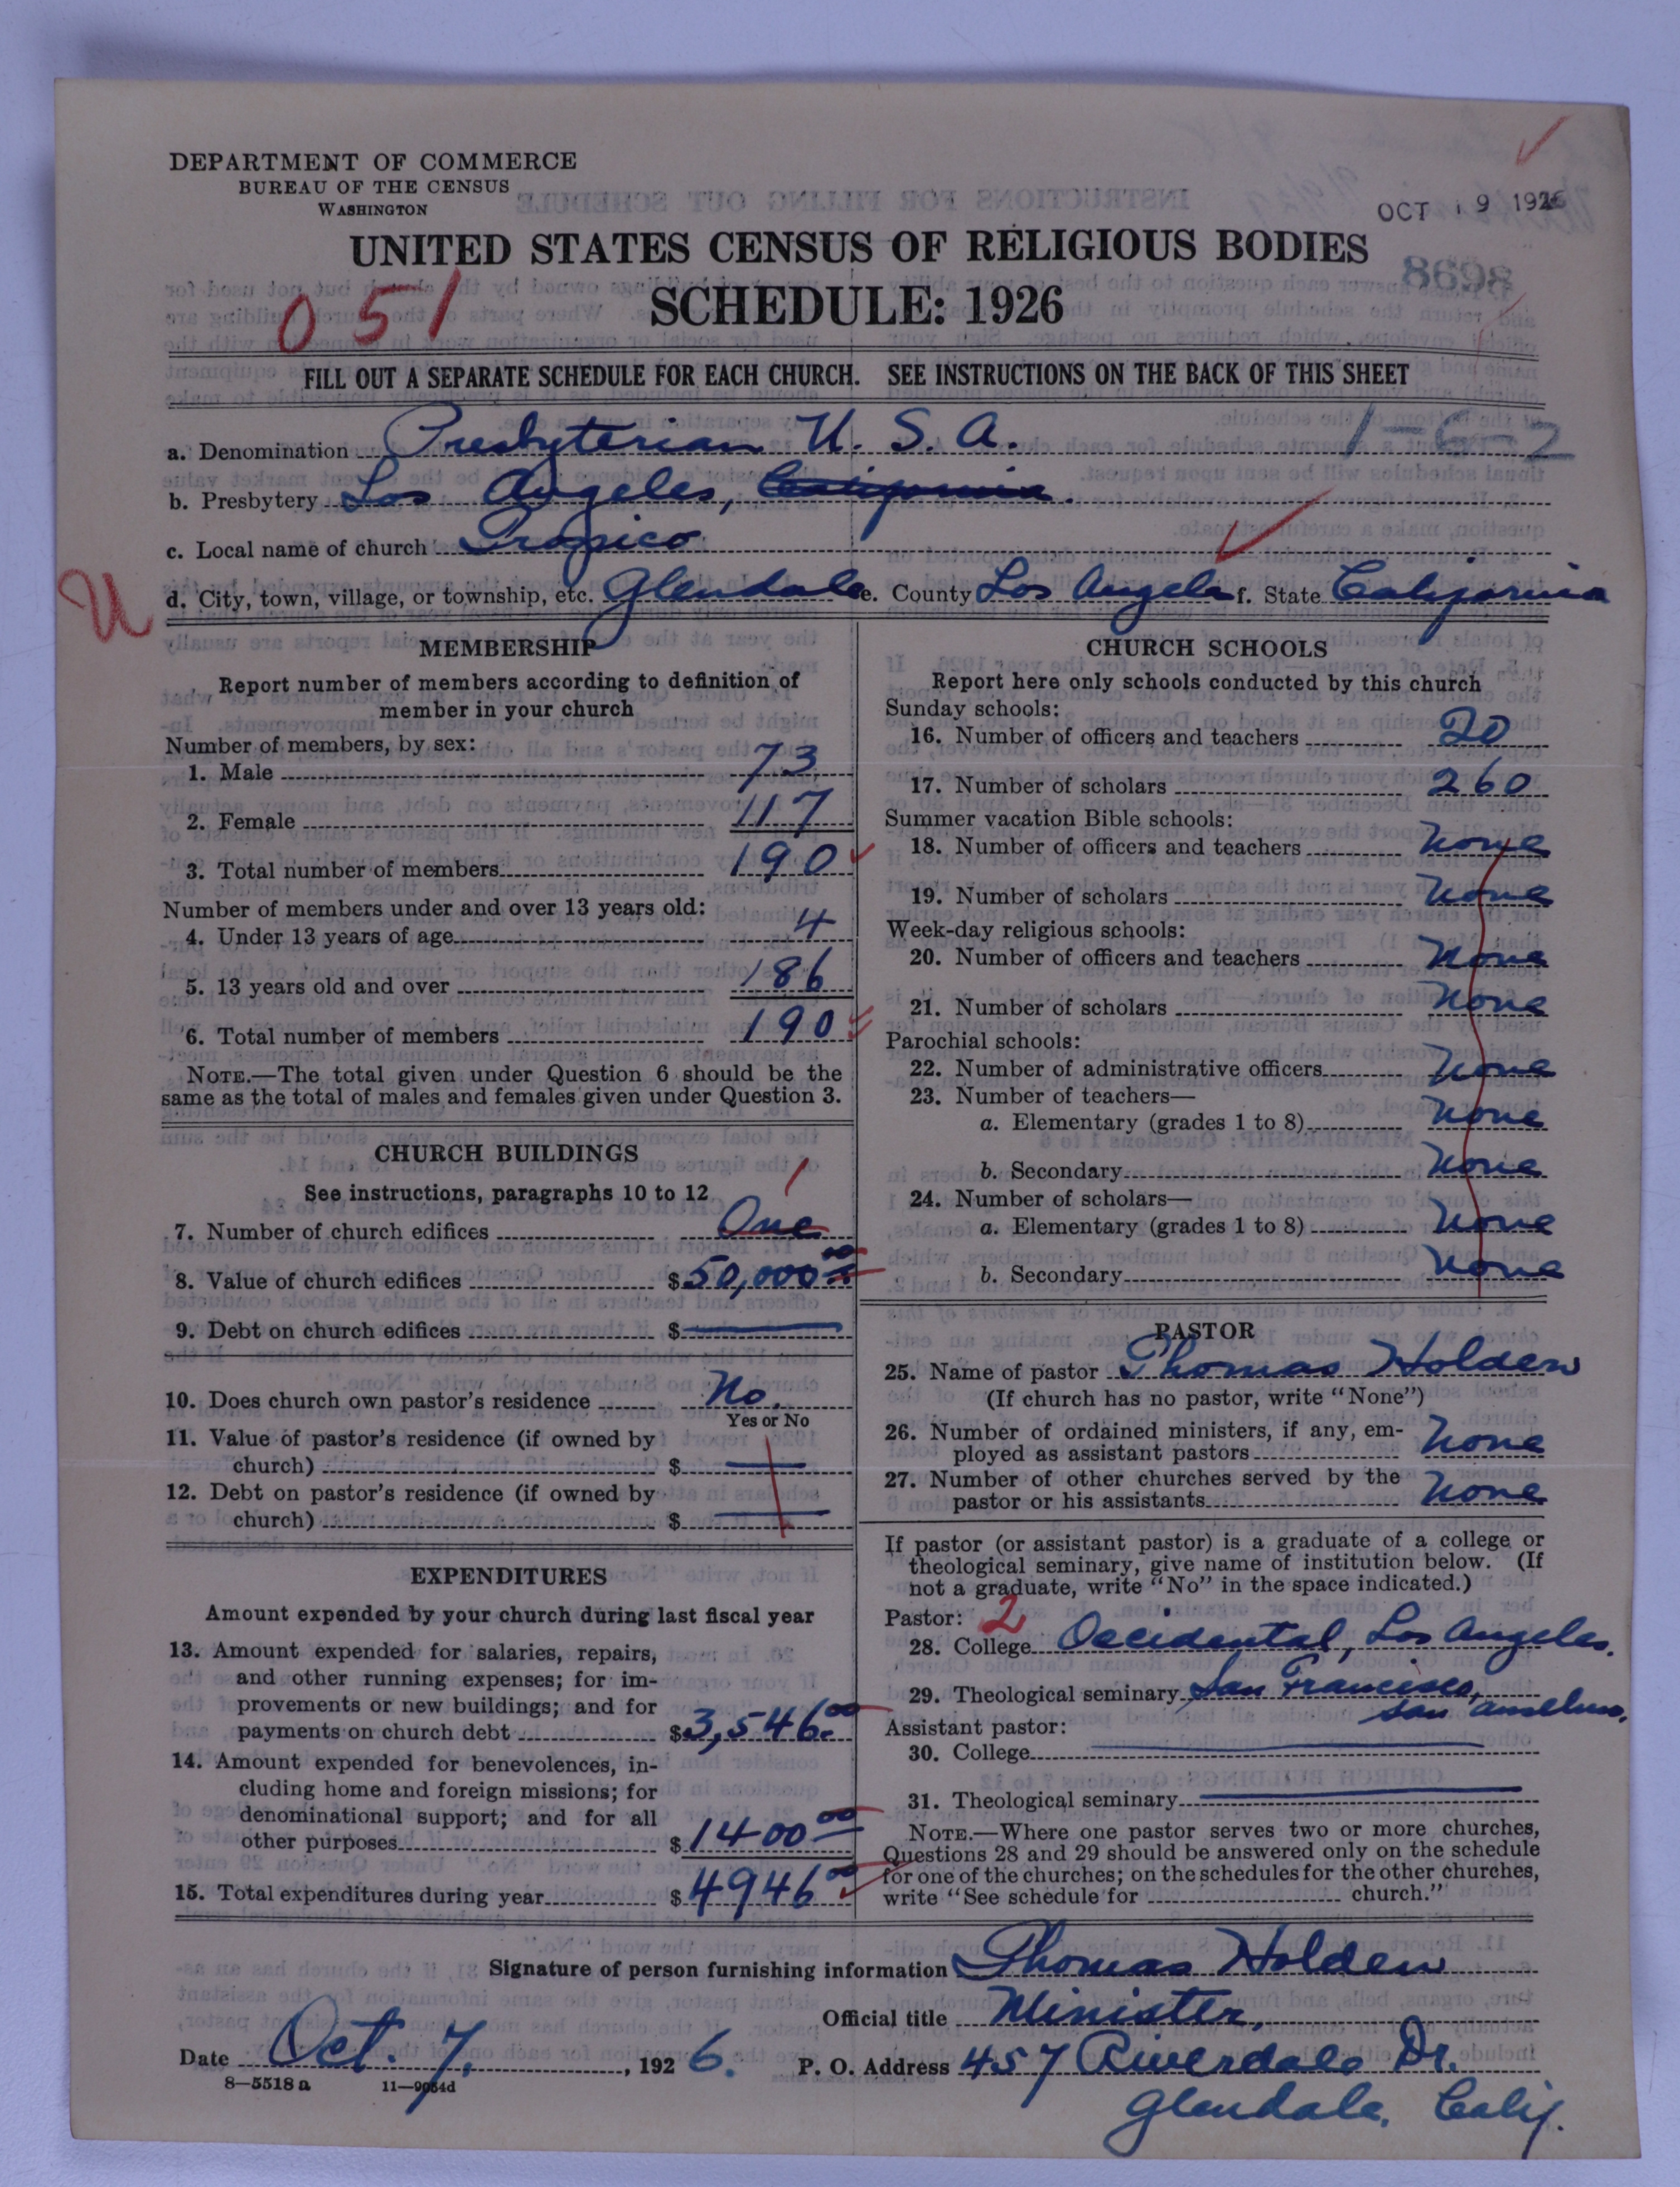 DEPARTMENT OF COMMERCE
BUREAU OF THE CENSUS
WASHINGTON
OCT 19 1926
UNITED STATES CENSUS OF RELIGIOUS BODIES
8698
051
SCHEDULE: 1926
FILL OUT A SEPARATE SCHEDULE FOR EACH CHURCH. SEE INSTRUCTIONS ON THE BACK OF THIS SHEET
a. Denomination Presbyterian U. S. A. 1-6-2
b. Presbytery Los Angeles, California.
c. Local name of church Tropico
U
d. City, town, village, or township, etc. Glendale e. County Los Angeles f. State California
MEMBERSHIP
Report number of members according to definition of
member in your church
Number of members, by sex:
1. Male 73
2. Female 117
3. Total number of members 190
Number of members under and over 13 years old:
4. Under 13 years of age 4
5. 13 years old and over 186
6. Total number of members 190
NOTE.—The total given under Question 6 should be the
same as the total of males and females given under Question 3.
CHURCH BUILDINGS
See instructions, paragraphs 10 to 12
1
7. Number of church edifices One
8. Value of church edifices $50,000 00
9. Debt on church edifices $
10. Does church own pastor's residence No.
Yes or No
11. Value of pastor's residence (if owned by
church) $
12. Debt on pastor's residence (if owned by
church) $
EXPENDITURES
Amount expended by your church during last fiscal year
13. Amount expended for salaries, repairs,
and other running expenses; for im-
provements or new buildings; and for
payments on church debt $3,546.00
14. Amount expended for benevolences, in-
cluding home and foreign missions; for
denominational support; and for all
other purposes $1400 00
15. Total expenditures during year $4946 00
CHURCH SCHOOLS
Report here only schools conducted by this church
Sunday schools:
16. Number of officers and teachers 20
17. Number of scholars 260
Summer vacation Bible schools:
18. Number of officers and teachers None
19. Number of scholars None
Week-day religious schools:
20. Number of officers and teachers None
21. Number of scholars None
Parochial schools:
22. Number of administrative officers None
23. Number of teachers—
a. Elementary (grades 1 to 8) None
b. Secondary None
24. Number of scholars—
a. Elementary (grades 1 to 8) None
b. Secondary None
PASTOR
25. Name of pastor Thomas Holden
(If church has no pastor, write "None")
26. Number of ordained ministers, if any, em-
ployed as assistant pastors None
27. Number of other churches served by the
pastor or his assistants None
If pastor (or assistant pastor) is a graduate of a college or
theological seminary, give name of institution below. (If
not a graduate, write "No" in the space indicated.)
Pastor: 2
28. College Occidental, Los Angeles.
29. Theological seminary San Francisco,
San Anselmo.
Assistant pastor:
30. College
31. Theological seminary
NOTE.—Where one pastor serves two or more churches,
Questions 28 and 29 should be answered only on the schedule
for one of the churches; on the schedules for the other churches,
write "See schedule for church."
Signature of person furnishing information Thomas Holden
Official title Minister,
Date Oct. 7, 1926. P. O. Address 457 Riverdale Dr.
8—5518 a 11—9054d
Glendale, Calif.